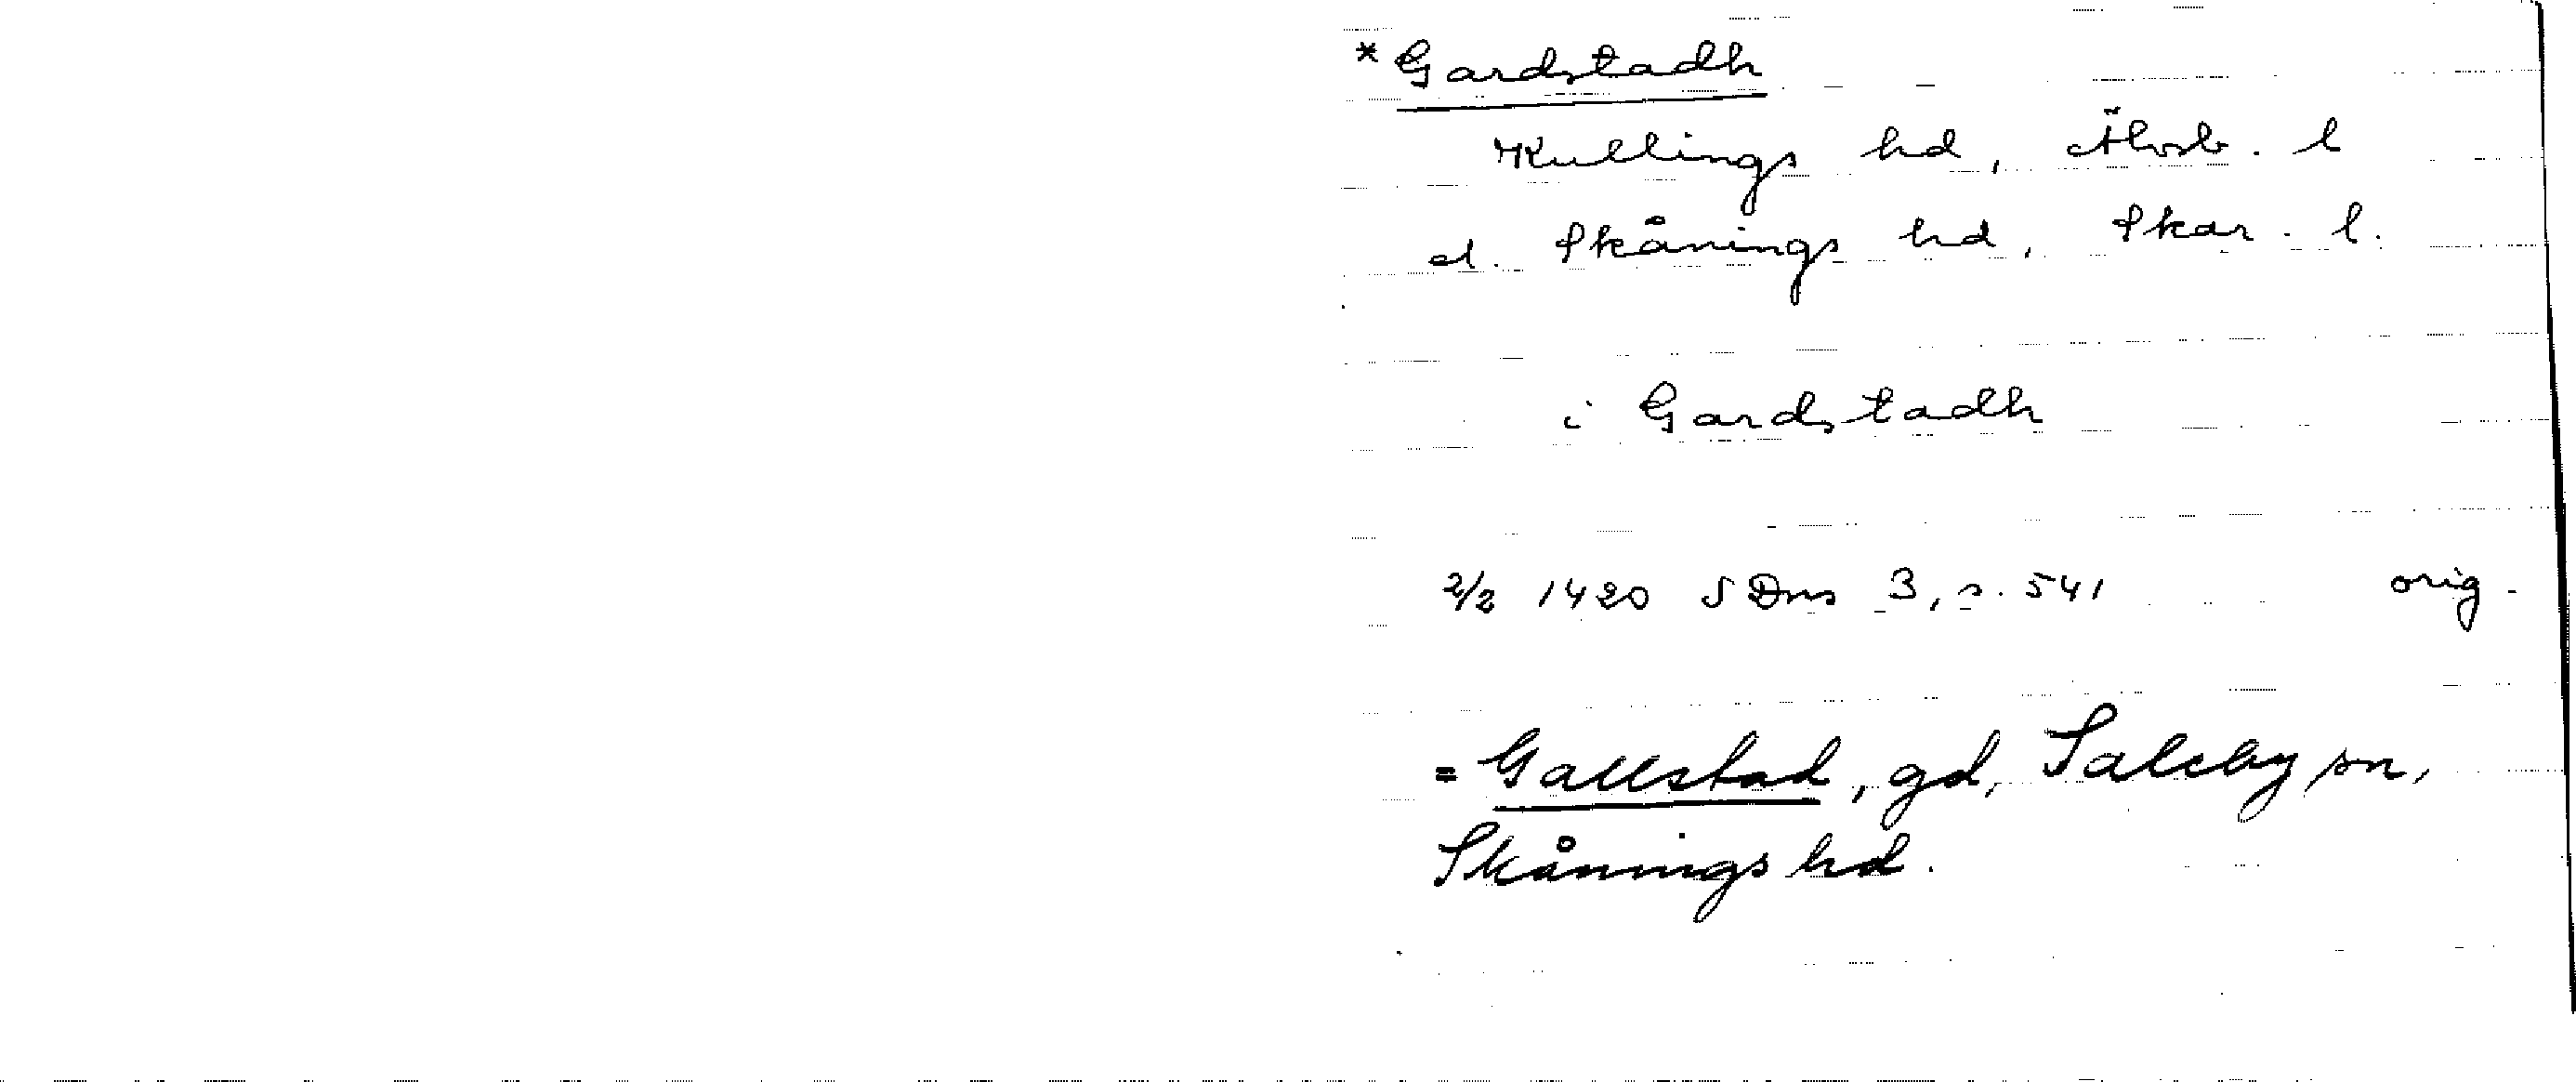 * Gardstadh
Kullings hd, Älvsb. l
el. Skånings hd, Skar. l.
i Gardstadh
2/2 1420 SDns 3, s. 541 orig.
= Gallstad, gd, Saleby sn,
Skånings hd.